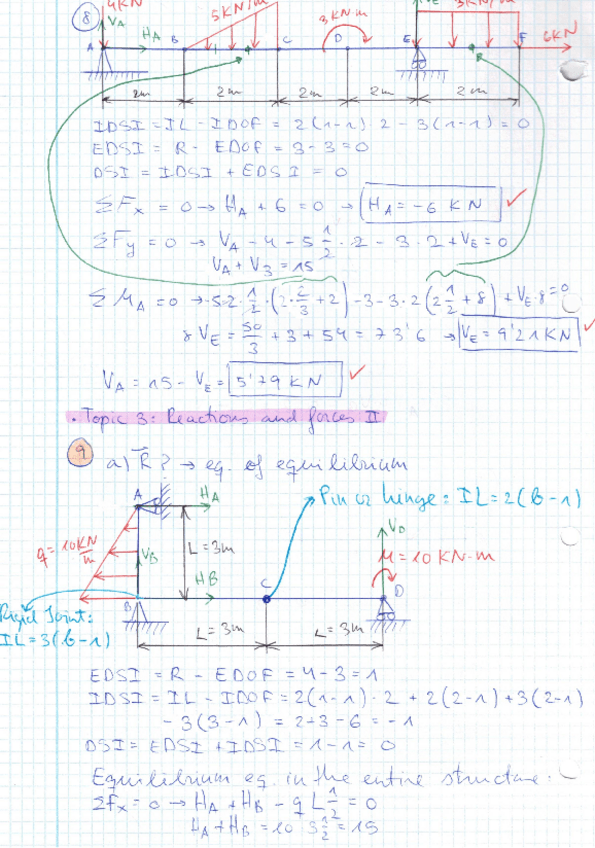 4KN
5KN/m
3KN·m
3KN/m
8
VA
HA
A
B
C
D
E
F
R
6KN
2m 2m 2m 2m 2m
IDSI = IL - IDOF = 2(1-1) 2 - 3(1-1) = 0
EDSI = R - EDOF = 3-3=0
DSI = IDSI + EDSI = 0
ΣFx = 0 → HA + 6 = 0 → HA = -6 KN ✓
ΣFy = 0 → VA - 4 - 5 1/2 · 2 - 3·2 + VE = 0
VA + V3 = 15
ΣMA = 0 → -5·2·1/2·(2·2/3 + 2) - 3 - 3·2(2 1/2 + 8) + VE·8 = 0
8 VE = 50/3 + 3 + 54 = 73'6 → VE = 9'21 KN ✓
VA = 15 - VE = 5'79 KN ✓
· Topic 3: Reactions and forces II
9 a) R? → eq. of equilibrium
Pin or hinge: IL = 2(b-1)
A
HA
q = 10 KN/m
VB
L = 3m
HB
VD
M = 10 KN·m
B
C
D
Rigid Joint:
IL = 3(b-1)
L = 3m
L = 3m
EDSI = R - EDOF = 4-3 = 1
IDSI = IL - IDOF = 2(1-1)·2 + 2(2-1) + 3(2-1)
- 3(3-1) = 2+3-6 = -1
DSI = EDSI + IDSI = 1-1 = 0
Equilibrium eq. in the entire structure:
ΣFx = 0 → HA + HB - q L 1/2 = 0
HA + HB = 10 3 1/2 = 15